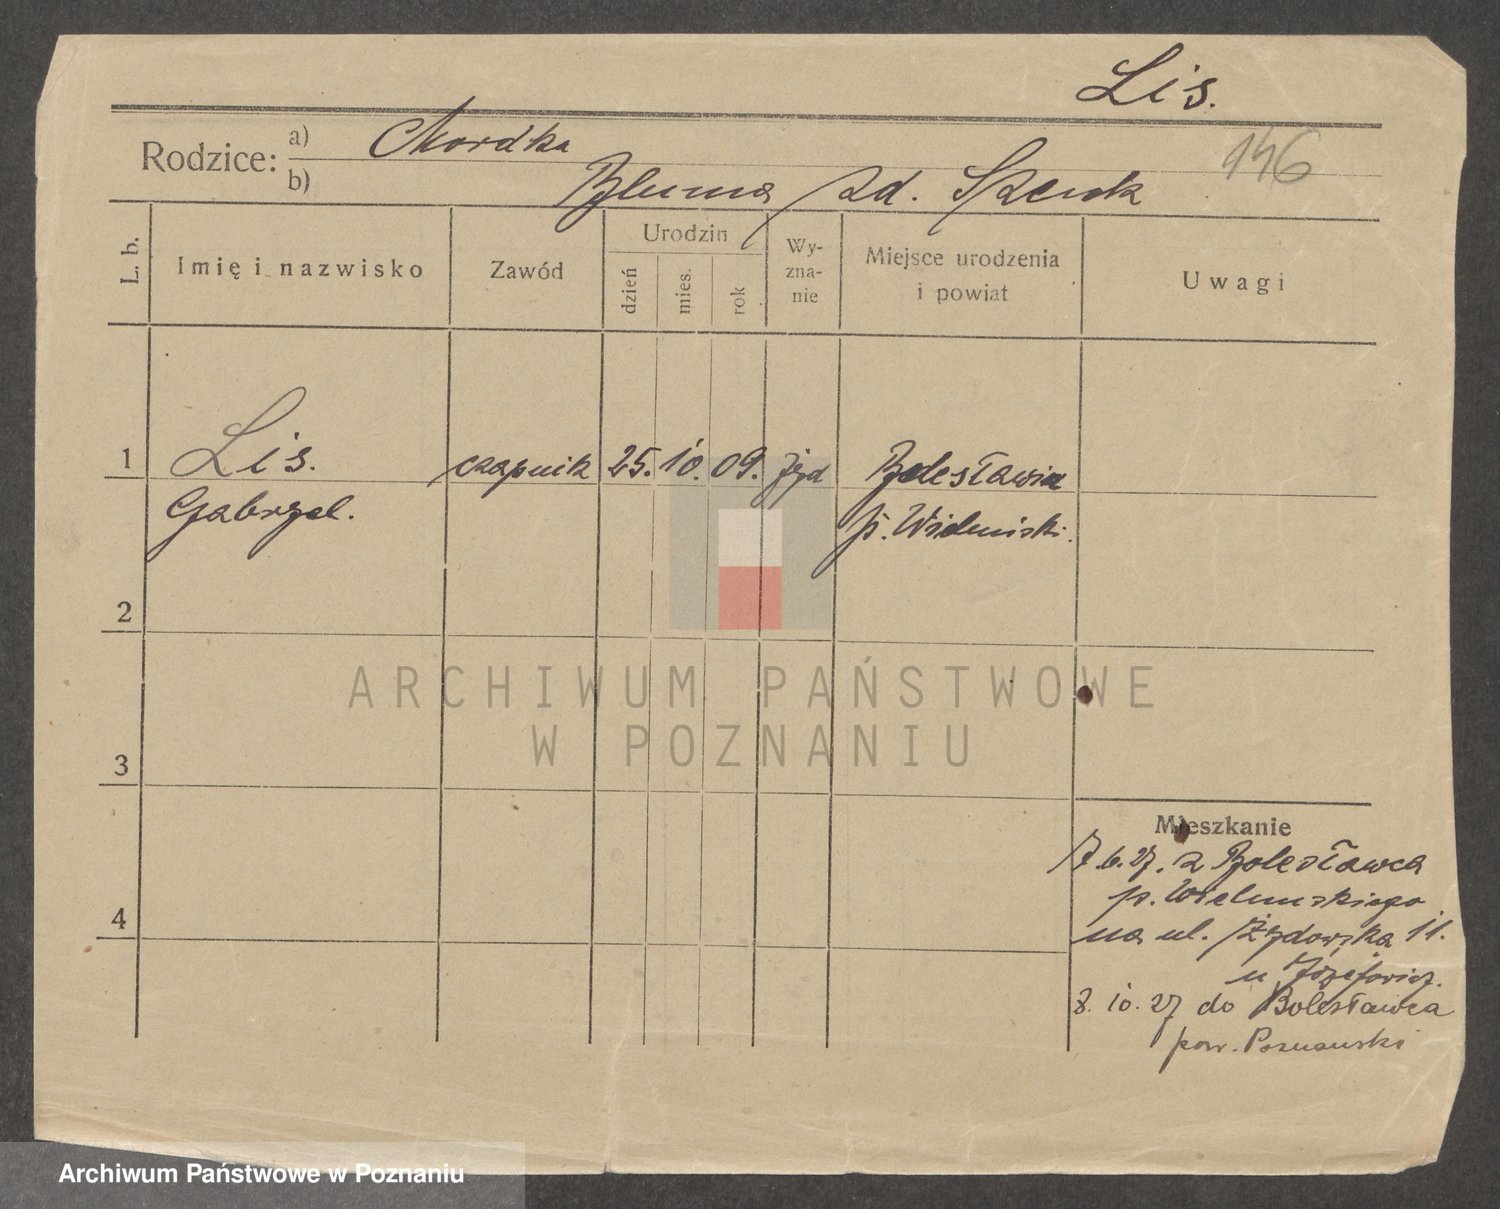 Lis.
146
Rodzice: a) Mordka
b) Bluma zd. Szenk
L. b.
Imię i nazwisko
Zawód
Urodzin
dzień
mies.
rok
Wy-
zna-
nie
Miejsce urodzenia
i powiat
Uwagi
1 Lis. czapnik 25. 10. 09. żyd Bolesławiec
Gabryel. p. Wieluński.
2
3
4
Mieszkanie
7.6.27. z Bolesławca
p. Wieluńskiego
na ul. Żydowska 11.
u Józefowicz.
8. 10. 27 do Bolesławca
pow. Poznański
ARCHIWUM PAŃSTWOWE
W POZNANIU
Archiwum Państwowe w Poznaniu